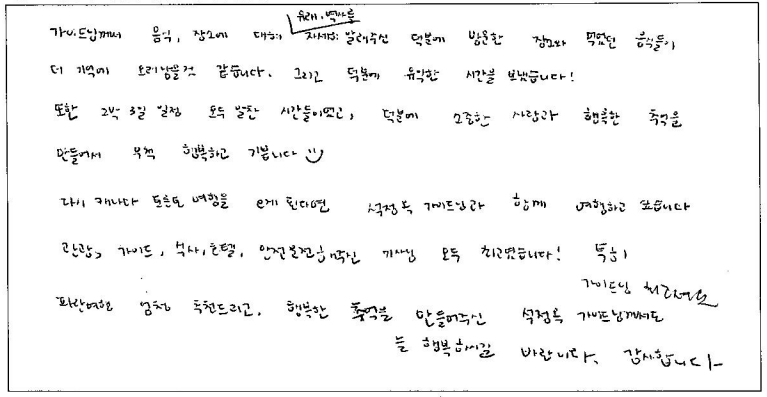 유래, 역사를
가이드님께서 음식, 장소에 대해 자세히 알려주신 덕분에 방문한 장소와 먹었던 음식들이
더 기억에 오래 남을것 같습니다. 그리고 덕분에 유익한 시간을 보냈습니다!
또한 2박 3일 일정 모두 알찬 시간들이었고, 덕분에 소중한 사람과 행복한 추억을
만들어서 무척 행복하고 기쁩니다
다시 캐나다 토론토 여행을 오게 된다면 석정옥 가이드님과 함께 여행하고 싶습니다
관광, 가이드, 식사, 호텔, 안전운전 해주신 기사님 모두 최고였습니다! 특히
가이드님 최고예요
파란여행 엄청 추천드리고, 행복한 추억을 만들어주신 석정옥 가이드님께서도
늘 행복하시길 바랍니다. 감사합니다